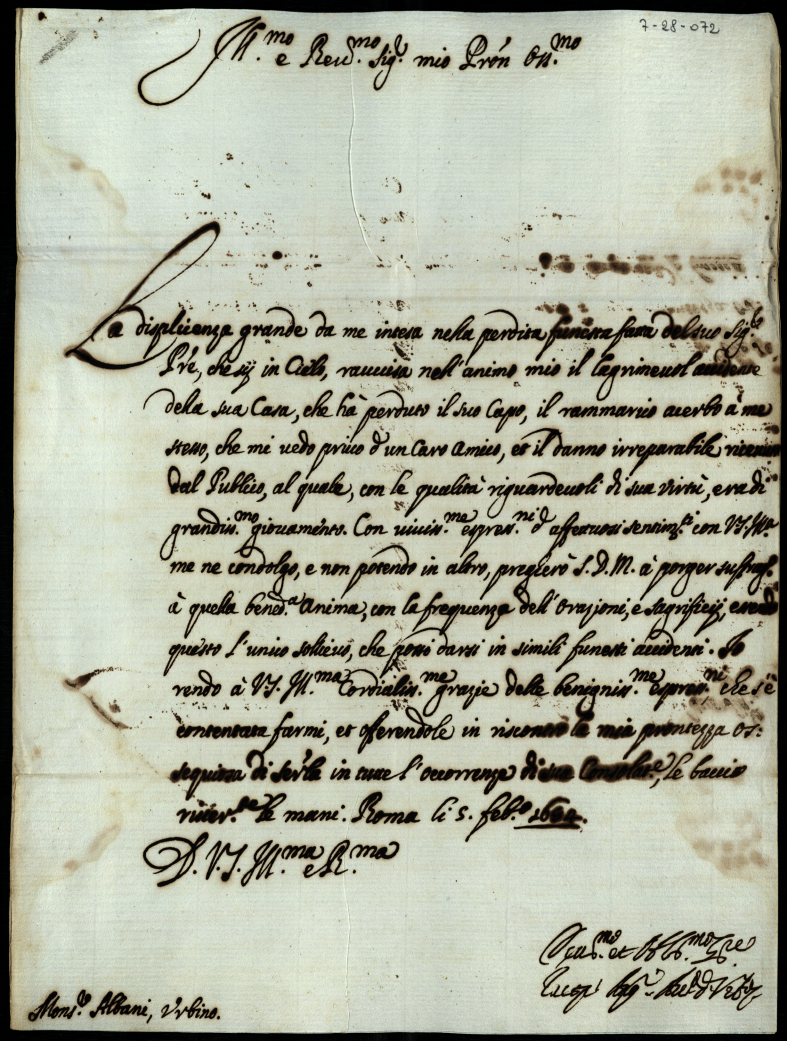 7-28-072
Ill.mo e Reu.mo Sig.r mio Prőn Oss.mo
La displicenza grande da me intesa nella perdita funesta fatta del suo Sig.r
Pre, che sij in Cielo, rauuisa nell'animo mio il lagrimeuol accidente
della sua Casa, che hà perduto il suo Capo, il rammarico acerbo à me
stesso, che mi uedo priuo d'un Caro Amico, et il danno irreparabile riceuuto
dal Publico, al quale, con le qualità riguardeuoli di sua Virtù, era di
grandiss.mo giouamento. Con uiuiss.me espress.ni d'affettuosi sentim.ti con V.S. Ill.ma
me ne condolgo, e non potendo in altro, pregierò S. D. M. à porger suffrag.
à quella bened.a Anima, con la frequenza dell'Orazioni, e sagrificij, essendo
questo l'unico sollieuo, che possi darsi in simili funesti accidenti. Io
rendo à V.S. Ill.ma Cordialiss.me grazie delle benigniss.me espress.ni che s'è
contentata farmi, et offerendole in riscontro la mia prontezza os:
sequiosa di ser.le in tutte l'occorrenze di sua Consolat.e, le baccio
riuer.te le mani. Roma li 5. feb.o
D. V. S. Ill.ma e R.ma
et
Mons.r Albani, Vrbino.